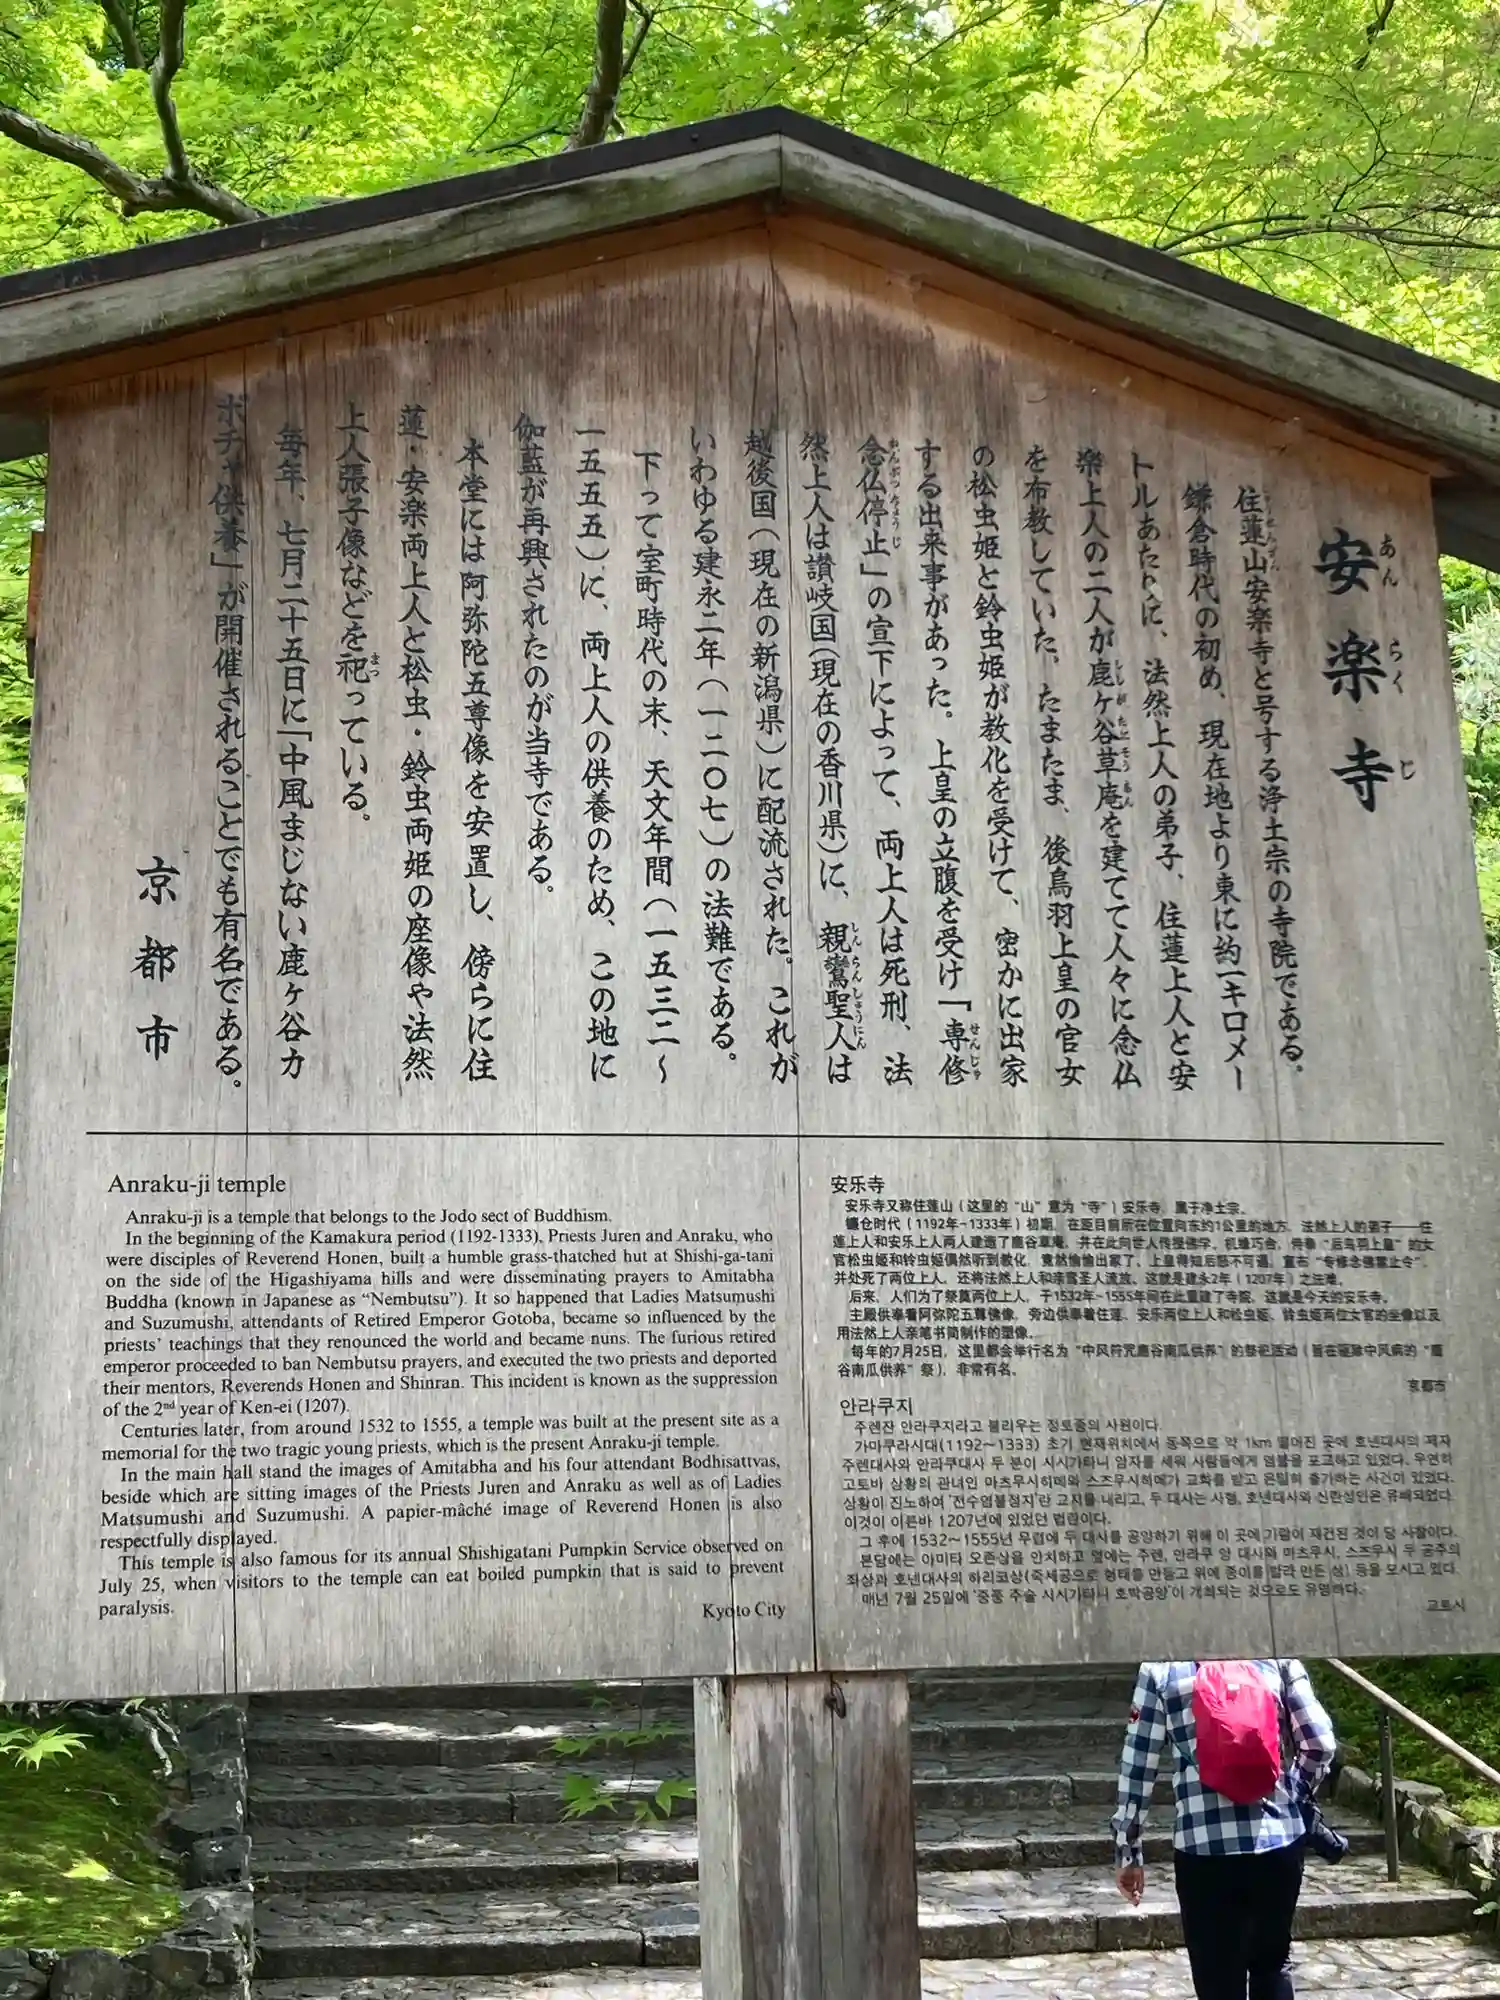 安楽寺
あんらくじ
住蓮山安楽寺と号する浄土宗の寺院である。
鎌倉時代の初め、現在地より東に約一キロメー
トルあたりに、法然上人の弟子、住蓮上人と安
楽上人の二人が鹿ヶ谷草庵を建てて人々に念仏
を布教していた。たまたま、後鳥羽上皇の官女
の松虫姫と鈴虫姫が教化を受けて、密かに出家
する出来事があった。上皇の立腹を受け「専修
念仏停止」の宣下によって、両上人は死刑、法
然上人は讃岐国(現在の香川県)に、親鸞聖人は
越後国(現在の新潟県)に配流された。これが
いわゆる建永二年(一二〇七)の法難である。
下って室町時代の末、天文年間(一五三二〜
一五五五)に、両上人の供養のため、この地に
伽藍が再興されたのが当寺である。
本堂には阿弥陀五尊像を安置し、傍らに住
蓮・安楽両上人と松虫・鈴虫両姫の座像や法然
上人張子像などを祀っている。
毎年、七月二十五日に「中風まじない鹿ヶ谷カ
ボチャ供養」が開催されることでも有名である。
京都市
Anraku-ji temple
Anraku-ji is a temple that belongs to the Jodo sect of Buddhism.
In the beginning of the Kamakura period (1192-1333), Priests Juren and Anraku, who
were disciples of Reverend Honen, built a humble grass-thatched hut at Shishi-ga-tani
on the side of the Higashiyama hills and were disseminating prayers to Amitabha
Buddha (known in Japanese as “Nembutsu”). It so happened that Ladies Matsumushi
and Suzumushi, attendants of Retired Emperor Gotoba, became so influenced by the
priests’ teachings that they renounced the world and became nuns. The furious retired
emperor proceeded to ban Nembutsu prayers, and executed the two priests and deported
their mentors, Reverends Honen and Shinran. This incident is known as the suppression
of the 2nd year of Ken-ei (1207).
Centuries later, from around 1532 to 1555, a temple was built at the present site as a
memorial for the two tragic young priests, which is the present Anraku-ji temple.
In the main hall stand the images of Amitabha and his four attendant Bodhisattvas,
beside which are sitting images of the Priests Juren and Anraku as well as of Ladies
Matsumushi and Suzumushi. A papier-mâché image of Reverend Honen is also
respectfully displayed.
This temple is also famous for its annual Shishigatani Pumpkin Service observed on
July 25, when visitors to the temple can eat boiled pumpkin that is said to prevent
paralysis.
Kyoto City
安乐寺
安乐寺又称住莲山（这里的“山”意为“寺”）安乐寺，属于净土宗。
镰仓时代（1192年-1333年）初期，在距目前所在位置向东约1公里的地方，法然上人的弟子——住
莲上人和安乐上人两人建造了鹿谷草庵，并在此向世人传授佛学。机缘巧合，侍奉“后鸟羽上皇”的女
官松虫姬和铃虫姬偶然听到教化，竟然偷偷出家了。上皇得知后怒不可遏，宣布“专修念佛禁止令”，
并处死了两位上人，还将法然上人和亲鸾圣人流放。这就是建永2年（1207年）之法难。
后来，人们为了祭奠两位上人，于1532年~1555年间在此重建了寺院，这就是今天的安乐寺。
主殿供奉着阿弥陀五尊佛像，旁边供奉着住莲、安乐两位上人和松虫姬、铃虫姬两位女官的坐像以及
用法然上人亲笔书简制作的塑像。
每年的7月25日，这里都会举行名为“中风符咒鹿谷南瓜供养”的祭祀活动（旨在驱除中风病的“鹿
谷南瓜供养”祭），非常有名。
京都市
안라쿠지
주렌잔 안라쿠지라고 불리우는 정토종의 사원이다.
가마쿠라시대(1192～1333) 초기 현재위치에서 동쪽으로 약 1km 떨어진 곳에 호넨대사의 제자
주렌대사와 안라쿠대사 두 분이 시시가타니 암자를 세워 사람들에게 염불을 포교하고 있었다. 우연히
고토바 상황의 관녀인 마츠무시히메와 스즈무시히메가 교화를 받고 은밀히 출가하는 사건이 있었다.
상황이 진노하여 '전수염불정지'란 교지를 내리고, 두 대사는 사형, 호넨대사와 신란성인은 유배되었다.
이것이 이른바 1207년에 있었던 법란이다.
그 후에 1532～1555년 무렵에 두 대사를 공양하기 위해 이 곳에 가람이 재건된 것이 당 사찰이다.
본당에는 아미타 오존상을 안치하고 옆에는 주렌, 안라쿠 양 대사와 마츠무시, 스즈무시 두 공주의
좌상과 호넨대사의 하리코상(죽세공으로 형태를 만들고 위에 종이를 발라 만든 상) 등을 모시고 있다.
매년 7월 25일에 '중풍 주술 시시가타니 호박공양'이 개최되는 것으로도 유명하다.
교토시